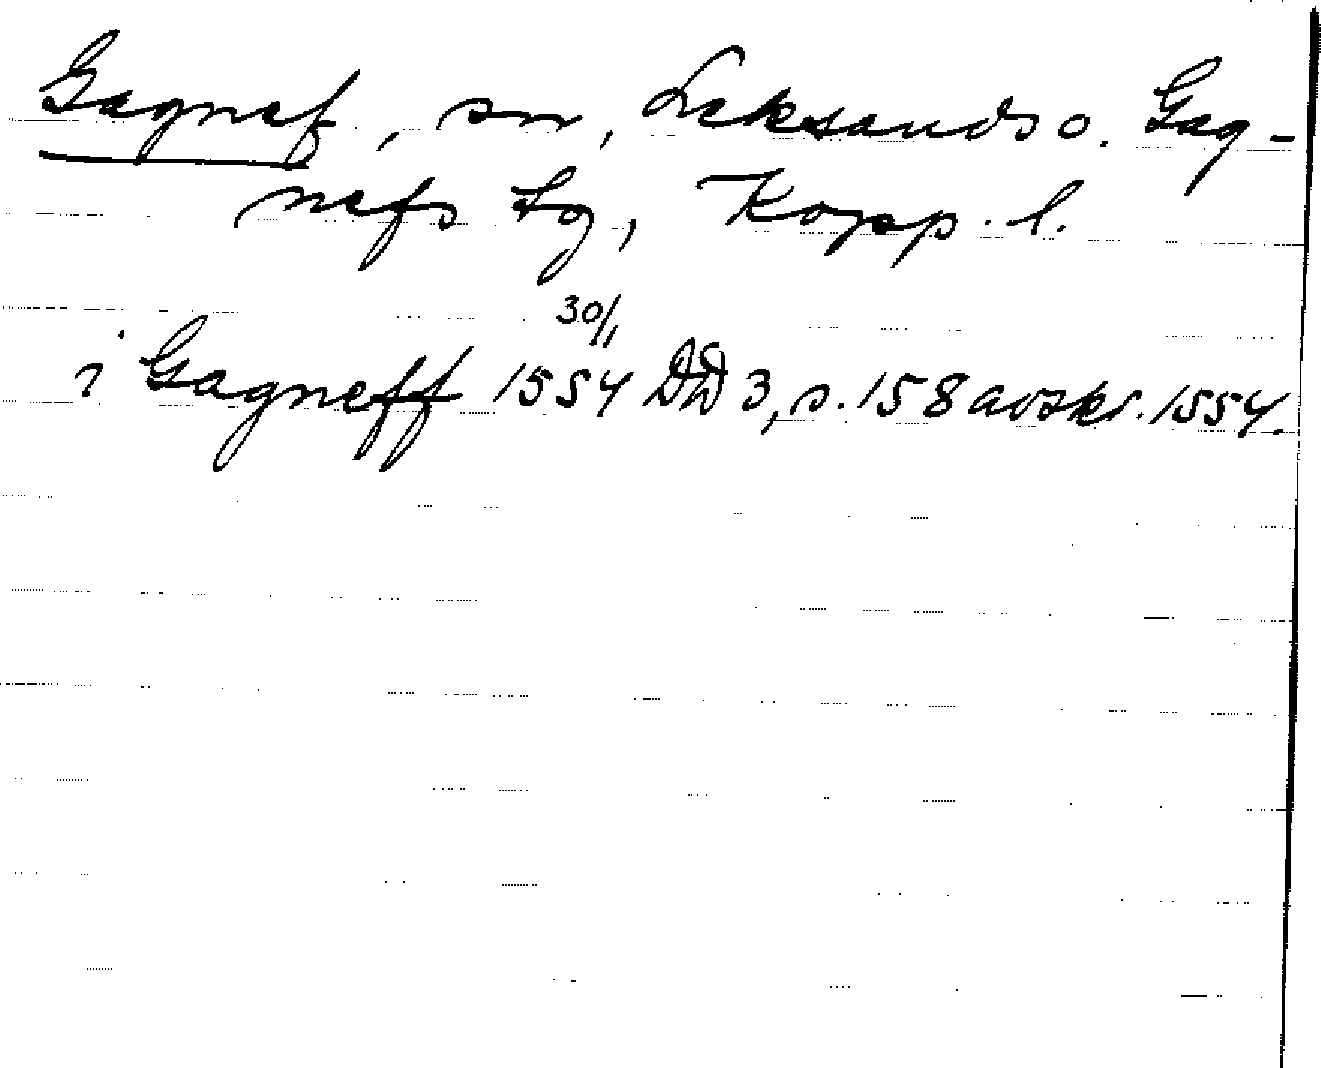 Gagnef, sn, Leksands o. Gag-
nefs tg, Kopp. l.
30/1
i Gagneff 1554 DD 3, s. 158 avskr. 1554.